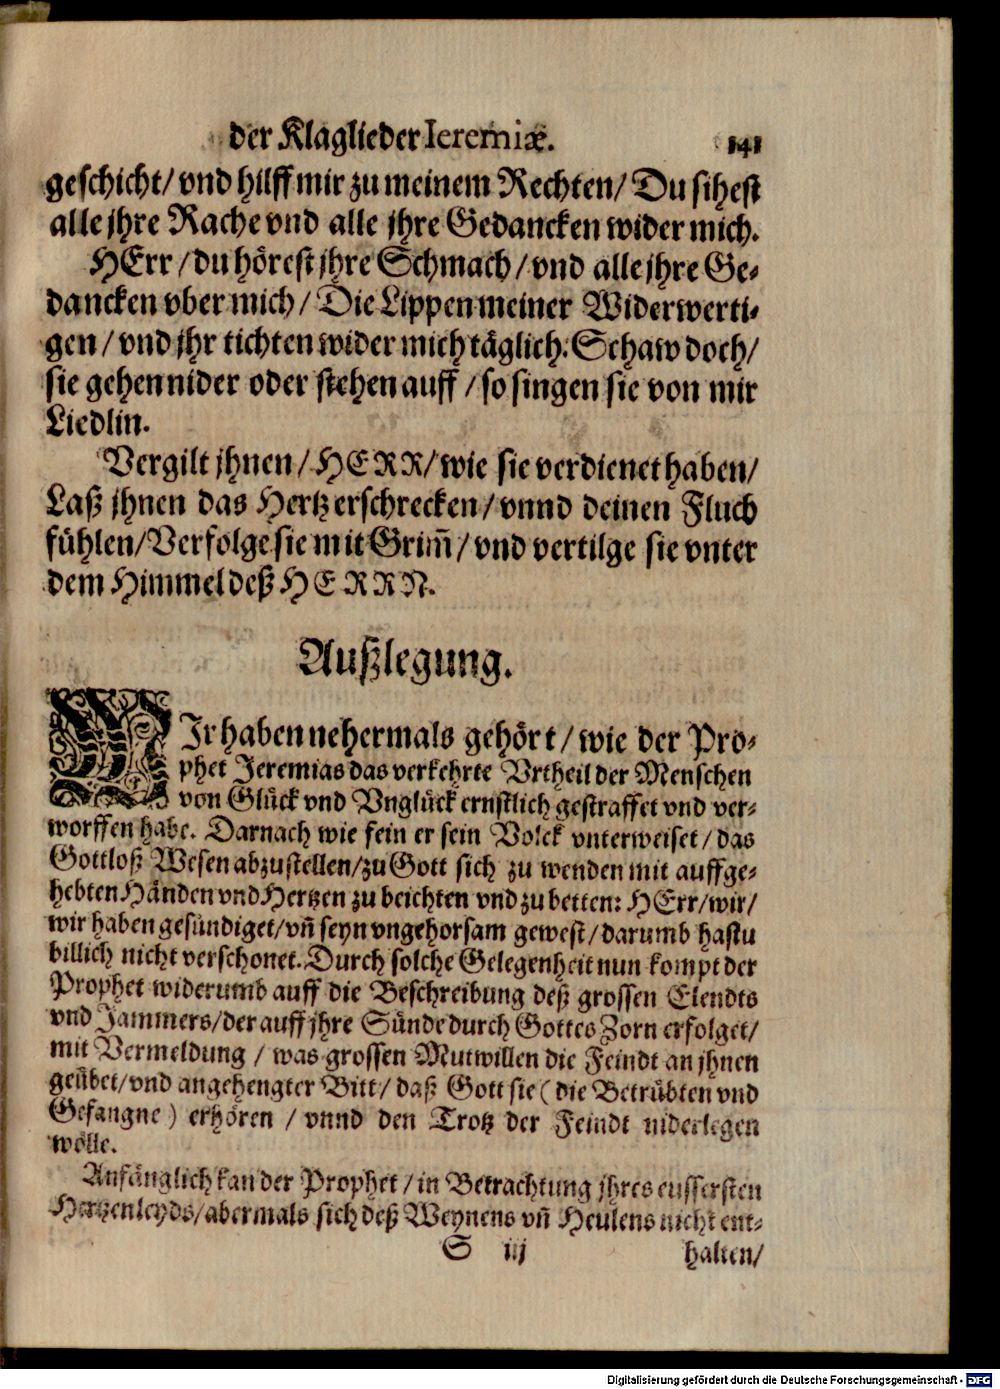 der Klaglieder Ieremiæ. 141
geschicht/ vnd hilff mir zu meinem Rechten/ Du sihest
alle jhre Rache vnd alle jhre Gedancken wider mich.
HErr/ du hörest jhre Schmach/ vnd alle jhre Ge-
dancken vber mich/ Die Lippen meiner Widerwerti-
gen/ vnd jhr tichten wider mich täglich. Schaw doch/
sie gehen nider oder stehen auff/ so singen sie von mir
Liedlin.
Vergilt jhnen/ HERR/ wie sie verdienet haben/
Laß jhnen das Hertz erschrecken/ vnnd deinen Fluch
fühlen/ Verfolge sie mit Grim̃/ vnd vertilge sie vnter
dem Himmel deß HERRN.
Außlegung.
WIr haben nehermals gehört/ wie der Pro-
phet Jeremias das verkehrte Vrtheil der Menschen
von Glück vnd Vnglück ernstlich gestraffet vnd ver-
worffen habe. Darnach wie fein er sein Volck vnterweiset/ das
Gottloß Wesen abzustellen/ zu Gott sich zu wenden mit auffge-
hebten Händen vnd Hertzen zu beichten vnd zu betten: HErr/ wir/
wir haben gesündiget/ vñ seyn vngehorsam gewest/ darumb hastu
billich nicht verschonet. Durch solche Gelegenheit nun kompt der
Prophet widerumb auff die Beschreibung deß grossen Elendts
vnd Jammers/ der auff jhre Sünde durch Gottes Zorn erfolget/
mit Vermeldung/ was grossen Mutwillen die Feindt an jhnen
geübet/ vnd angehengter Bitt/ daß Gott sie (die Betrübten vnd
Gefangne) erhören/ vnnd den Trotz der Feindt niderlegen
wölle.
Anfänglich kan der Prophet/ in Betrachtung jhres eussersten
Hertzenleyds/ abermals sich deß Weynens vñ Heulens nicht ent-
S iij halten/
Digitalisierung gefördert durch die Deutsche Forschungsgemeinschaft - DFG